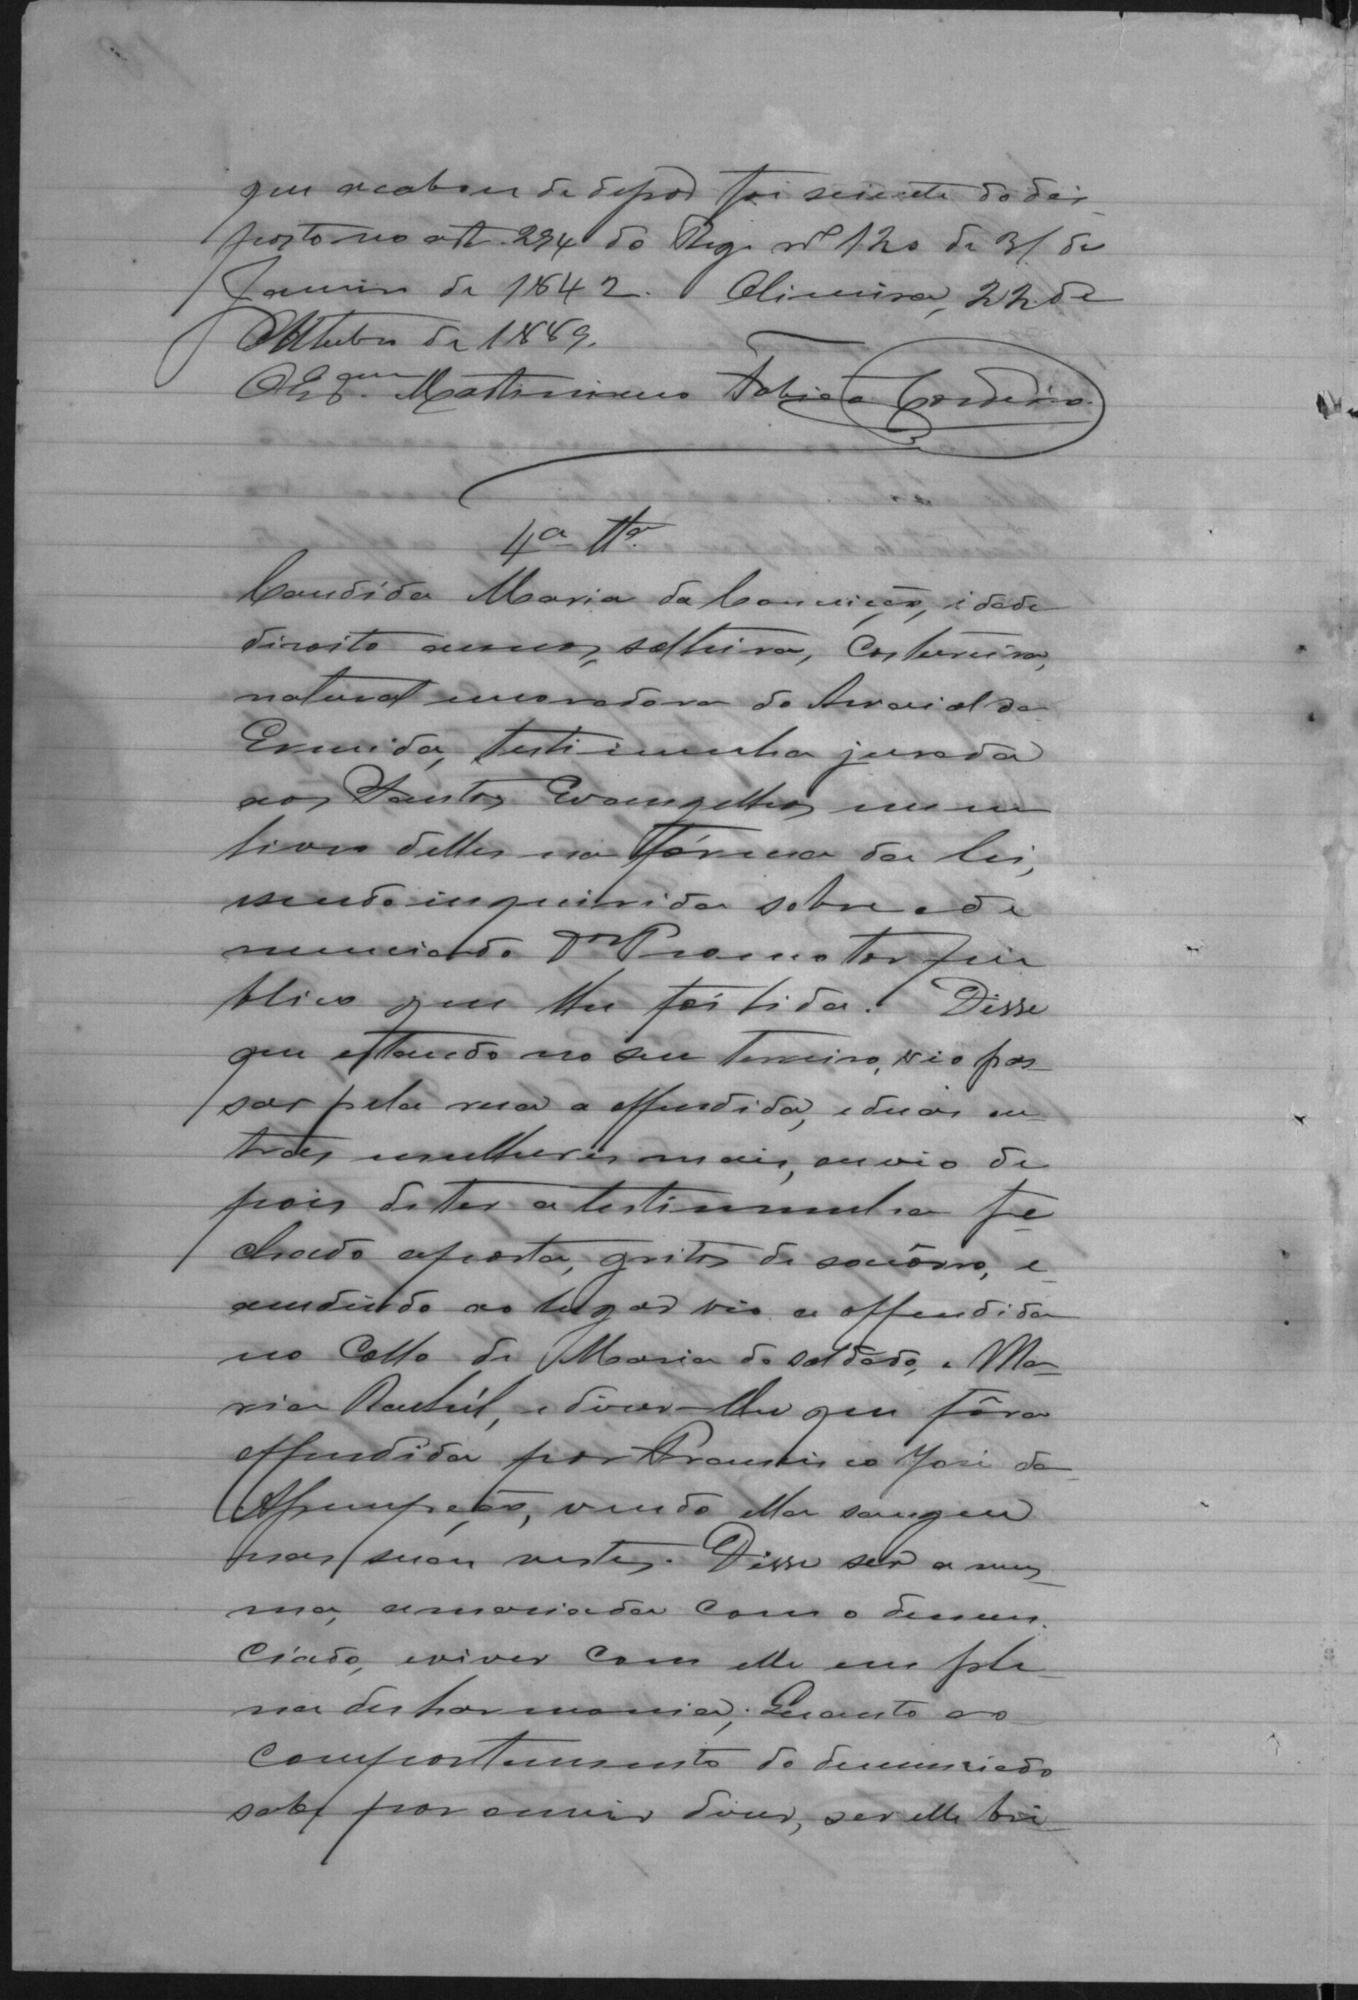 que acabou de depôr foi sciente do dis-
posto no art. 294 do Reg. nº 120 de 31 de
Janeiro de 1842. Oliveira, 22 de
Outubro de 1889.
O Esc.am Martiniano Fabio Cordeiro.
4ª Ttª
Candida Maria da Conceição, idade
disoito annos, solteira, Costureira,
natural e moradora do Arraial da
Ermida, testimunha jurada
aos Santos Evangelhos em um
livro delles na fórma da lei,
sendo inquirida sobre a de
nuncia do Dr Promotor pu
blico que lhe foi lida. Disse
que estando no seu terreiro, vio pas-
sar pela rua a offendida, e duas ou-
tras mulheres mais, ouvio de
pois de ter a testimunha fe-
chado aporta, gritos de socôrro, e
acudindo ao lugar vio a offendida
no Collo de Maria do soldado, e Ma-
ria Rachel, e dizer-lhe que fôra
offendida por Francisco José da
Assumpção, vendo ella sangue
nas suas vestes. Disse ser a mes-
ma, amaziada com o denun-
ciado, e viver com elle em ple-
na desharmonia; Quanto ao
comportamento do denunciado
sabe por ouvir dizer, ser elle bri-